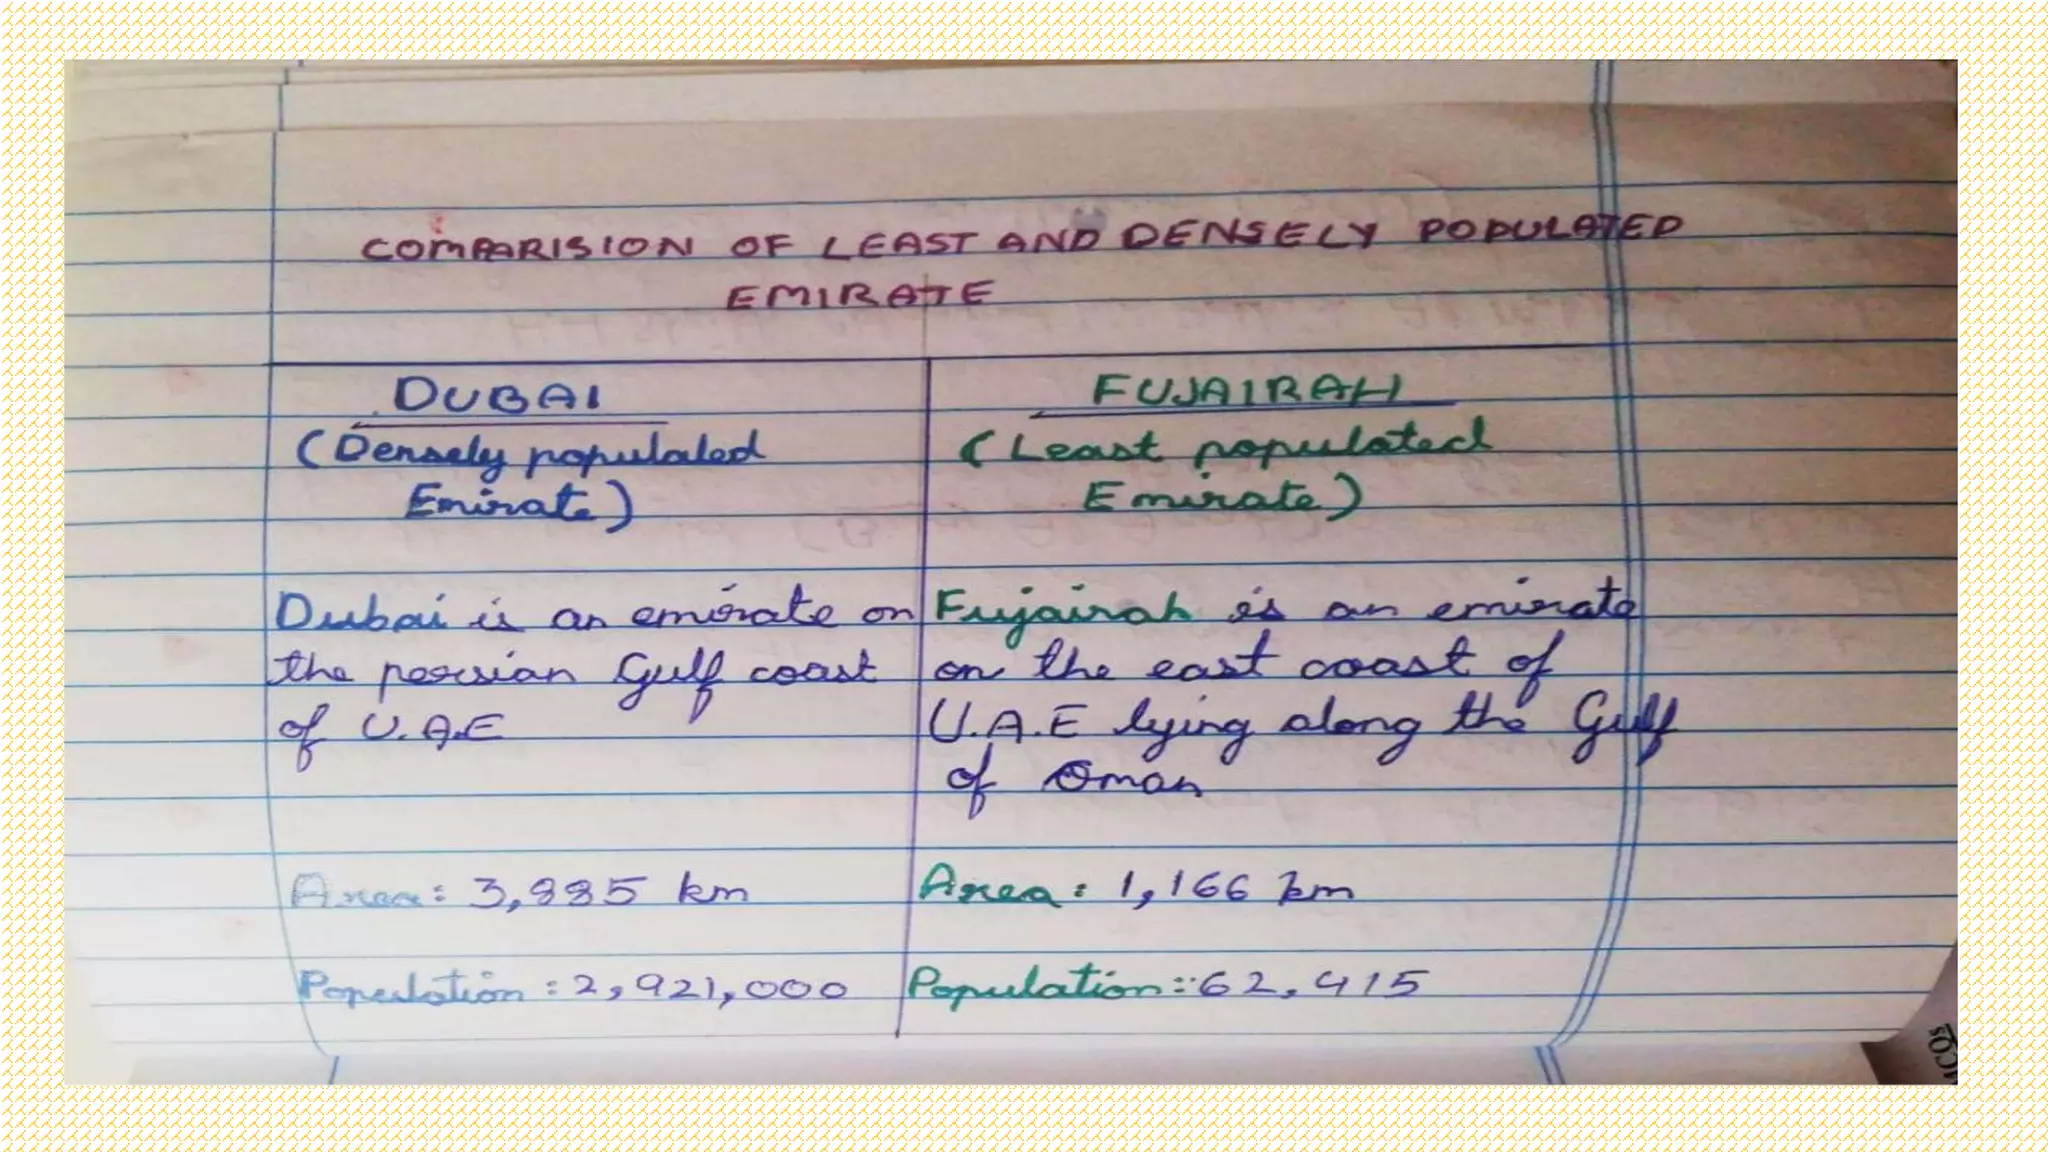 COMPARISION OF LEAST AND DENSELY POPULATED
EMIRATE
DUBAI
(Densely populated
Emirate)
Dubai is an emirate on
the persian Gulf coast
of U.A.E
Area: 3,885 km
Population: 2,921,000
FUJAIRAH
(Least populated
Emirate)
Fujairah is an emirate
on the east coast of
U.A.E lying along the Gulf
of Oman
Area: 1,166 km
Population: 62,415
MCQs